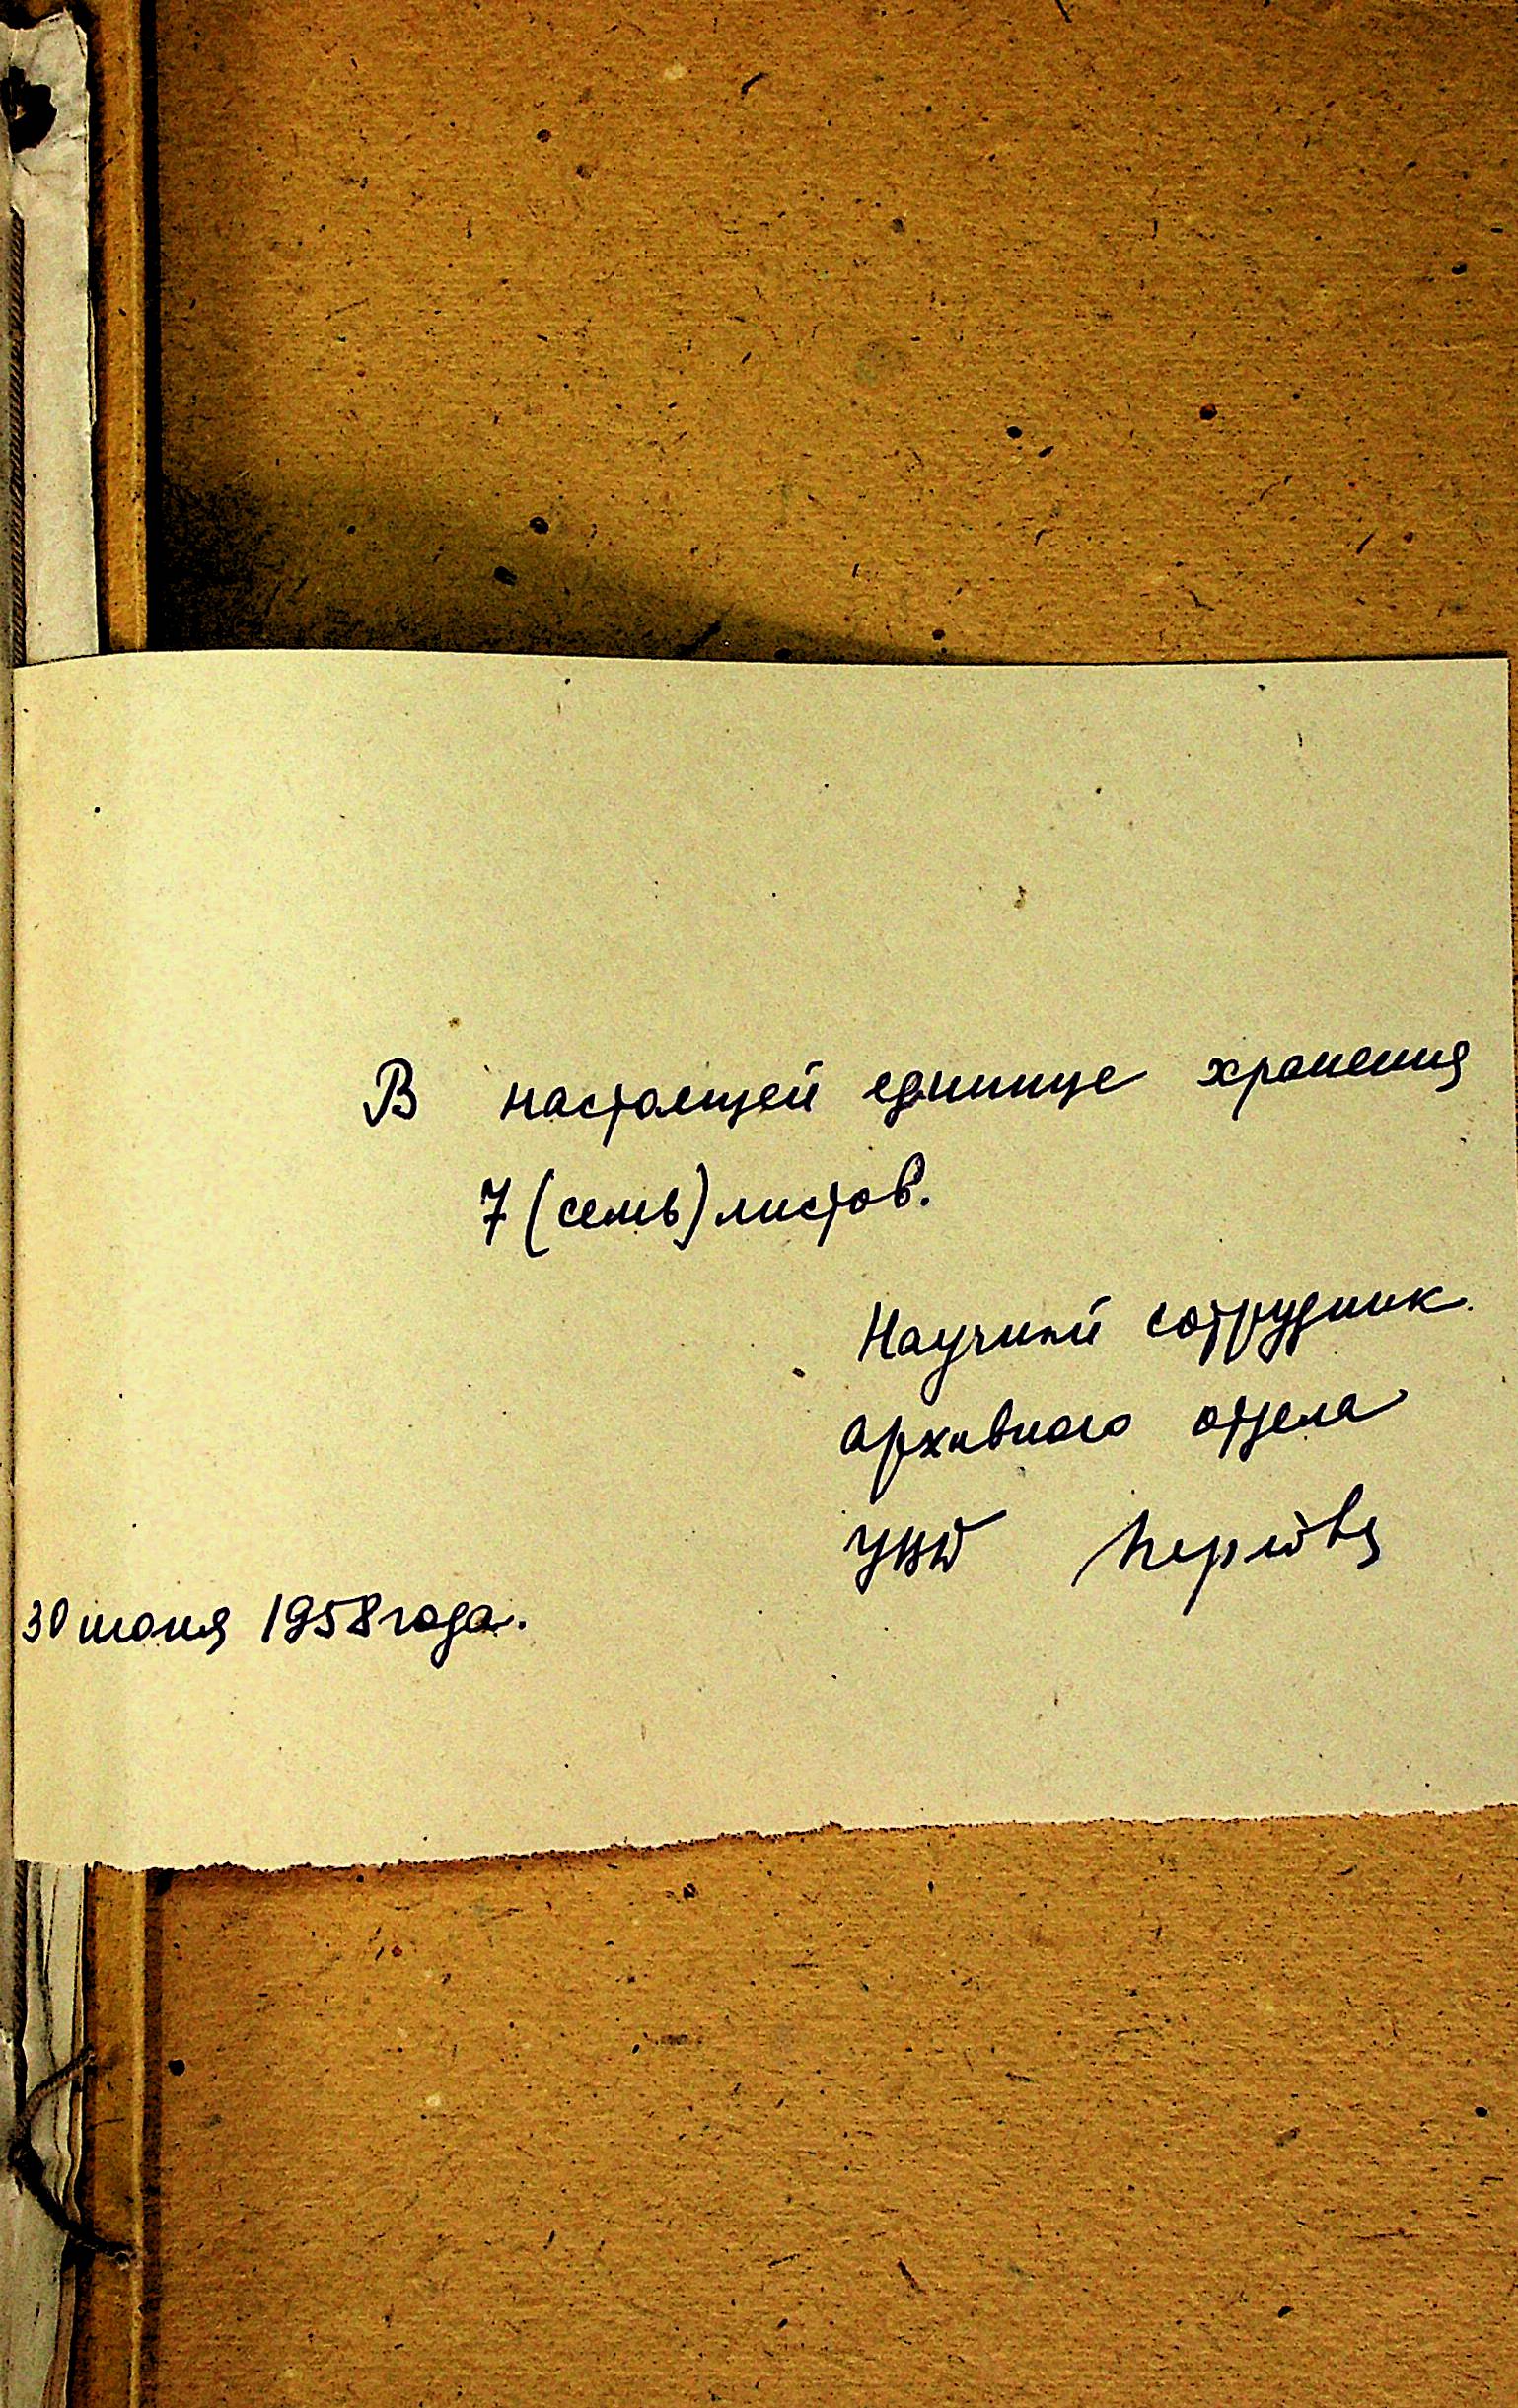 В настоящей единице хранения
7 (семь) листов.
Научный сотрудник
архивного отдела
УВД
30 июня 1958 года.